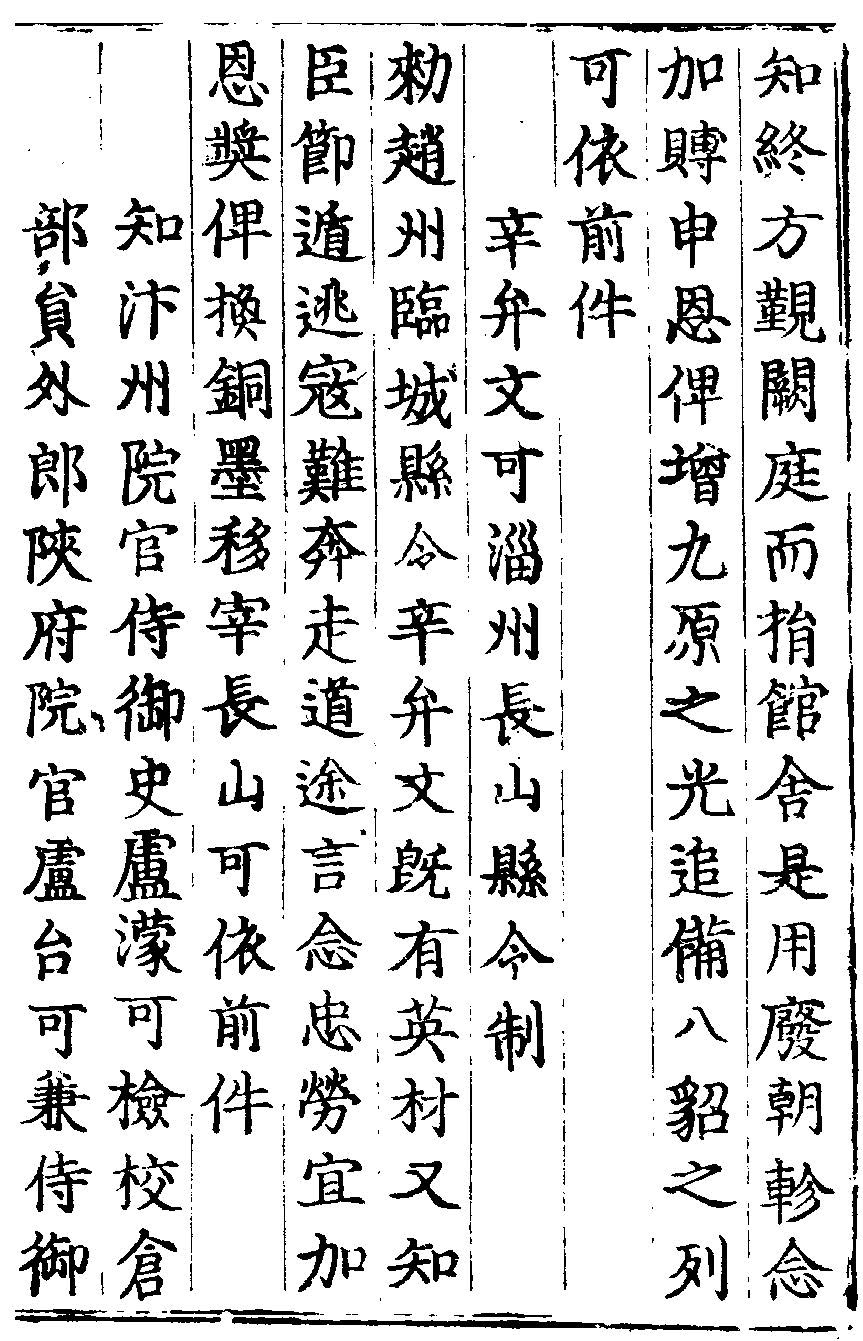 知終方覲闕庭而捐館舍是用廢朝軫念
加賻申恩俾增九原之光追備八貂之列
可依前件
辛弁文可淄州長山縣令制
勑趙州臨城縣令辛弁文旣有英材又知
臣節遁逃寇難奔走道途言念忠勞宜加
恩獎俾換銅墨移宰長山可依前件
知汴州院官侍御史盧濛可檢校倉
部員外郎陝府院官盧台可兼侍御